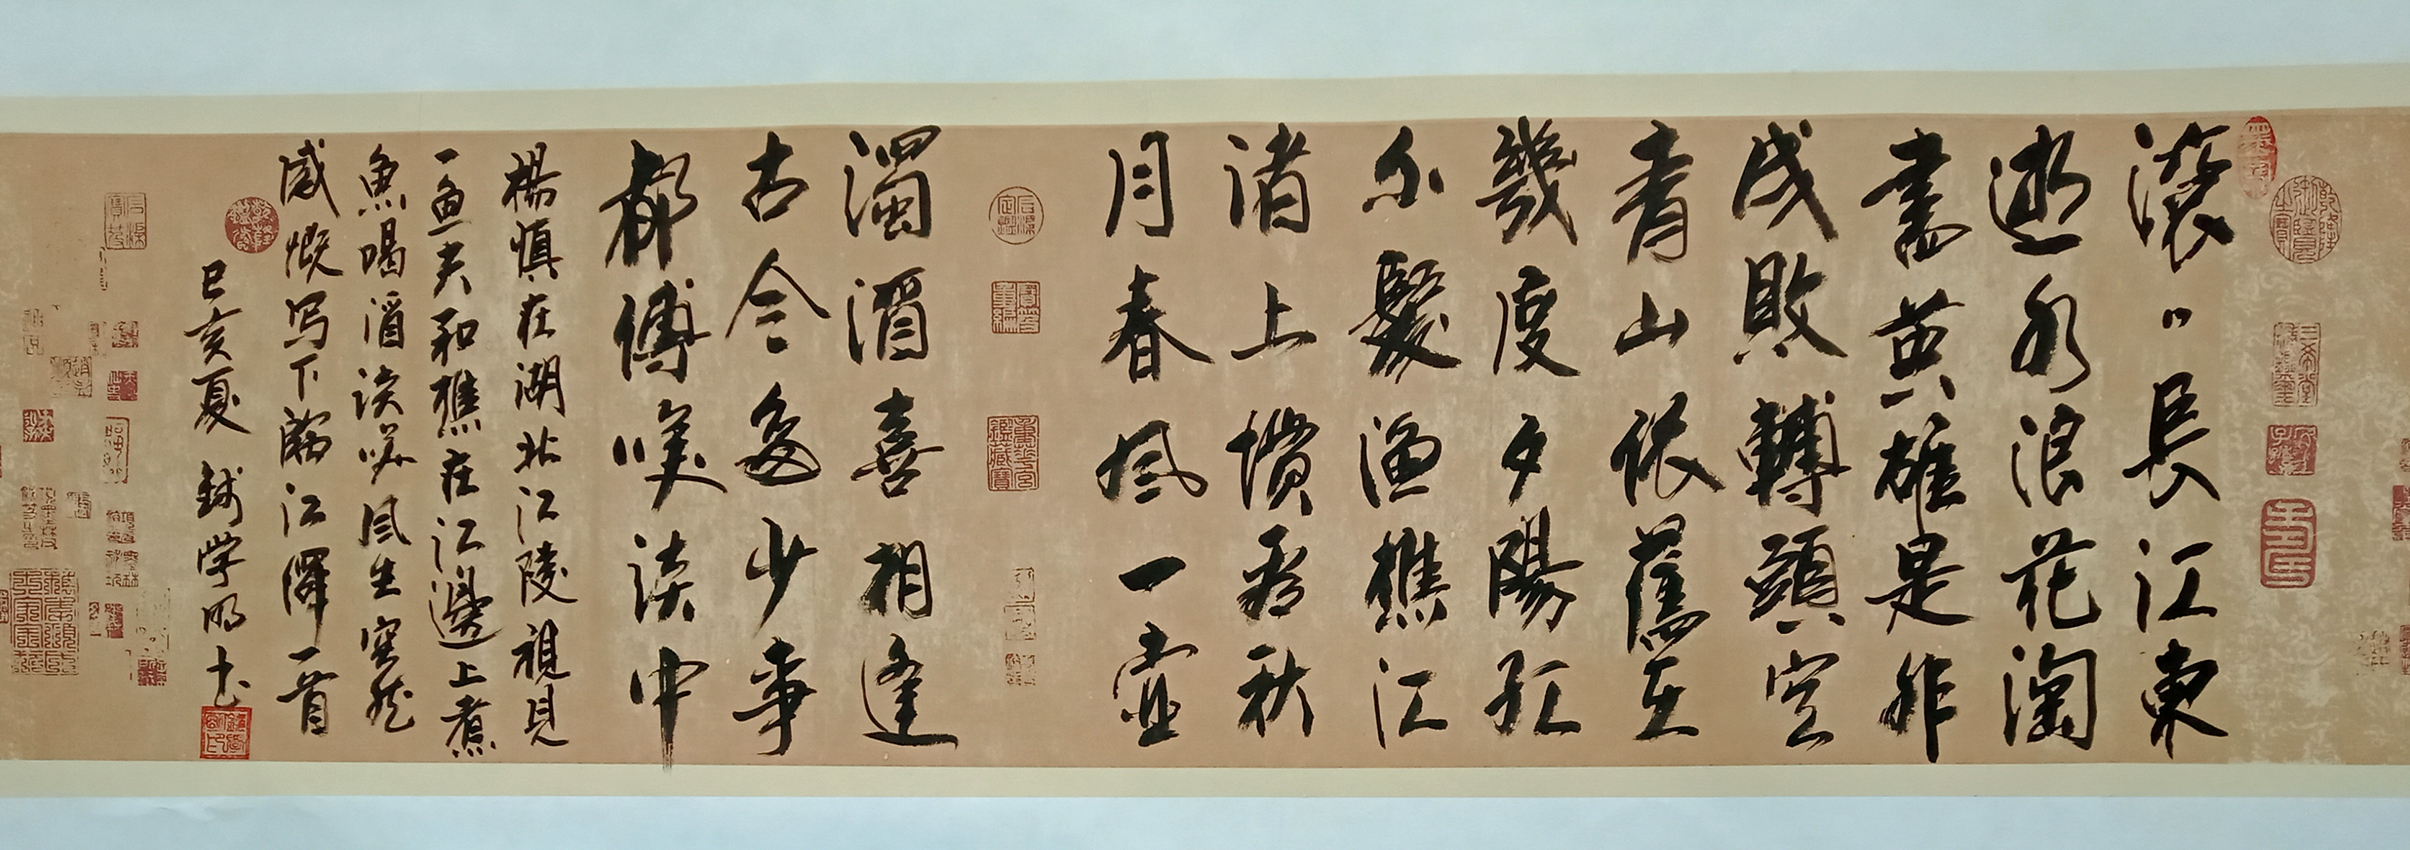 滚〻長江東
逝水浪花淘
盡英雄是非
成敗轉頭空
青山依舊在
幾度夕陽紅
白髮漁樵江
渚上慣看秋
月春風一壺
濁酒喜相逢
古今多少事
都傅笑談中
楊慎在湖北江陵視見
一魚夫和樵在江邊上煮
魚喝酒談笑風生突然
感慨写下臨江僊一首
己亥夏 学明书